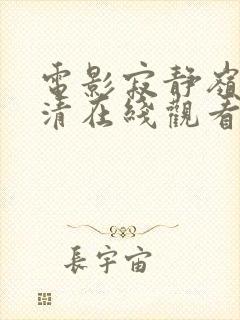 電影寂靜嶺
清在綫觀看
長宇宙